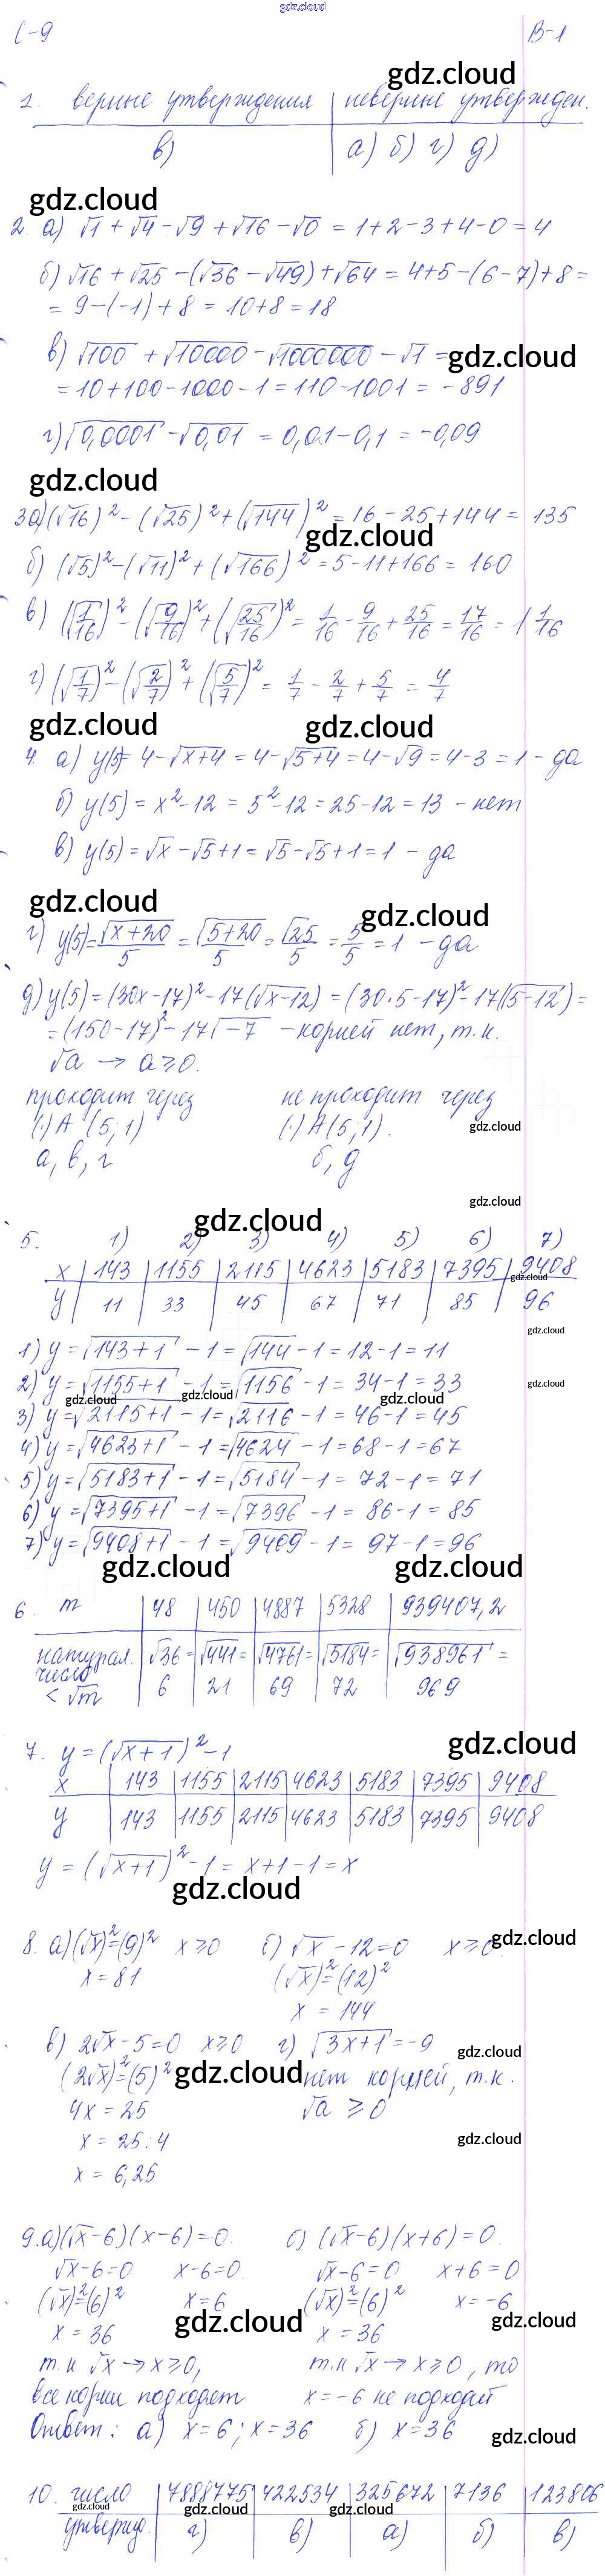 gdz.cloud
С-9 В-1
gdz.cloud
1. верные утверждения | неверные утвержден.
в) | а) б) г) д)
gdz.cloud
2. а) √1 + √4 - √9 + √16 - √0 = 1+2-3+4-0=4
б) √16 + √25 - (√36 - √49) + √64 = 4+5-(6-7)+8 =
= 9-(-1)+8 = 10+8 = 18
в) √100 + √10000 - √1000000 - √1 = gdz.cloud
= 10+100-1000-1 = 110-1001 = -891
г) √0,0001 - √0,01 = 0,01-0,1 = -0,09
gdz.cloud
3 а) (√16)² - (√25)² + (√144)² = 16-25+144 = 135
gdz.cloud
б) (√5)² - (√11)² + (√166)² = 5-11+166 = 160
в) (√1/16)² - (√9/16)² + (√25/16)² = 1/16 - 9/16 + 25/16 = 17/16 = 1 1/16
г) (√1/7)² - (√2/7)² + (√5/7)² = 1/7 - 2/7 + 5/7 = 4/7
gdz.cloud gdz.cloud
4. а) y(5) = 4-√x+4 = 4-√5+4 = 4-√9 = 4-3 = 1 - да
б) y(5) = x²-12 = 5²-12 = 25-12 = 13 - нет
в) y(5) = √x - √5+1 = √5-√5+1 = 1 - да
gdz.cloud gdz.cloud
г) y(5) = √x+20/5 = √5+20/5 = √25/5 = 5/5 = 1 - да
д) y(5) = (30x-17)² - 17(√x-12) = (30·5-17)² - 17(√5-12) =
= (150-17)² - 17√-7 - корней нет, т.к.
√a → a ≥ 0.
проходит через не проходит через
(·) A (5;1) (·) A (5;1). gdz.cloud
а, в, г б, д
gdz.cloud
gdz.cloud
5. 1) 2) 3) 4) 5) 6) 7)
x | 143 | 1155 | 2115 | 4623 | 5183 | 7395 | 9408
gdz.cloud
y | 11 | 33 | 45 | 67 | 71 | 85 | 96
gdz.cloud
1) y = √143+1 - 1 = √144 - 1 = 12-1 = 11
2) y = √1155+1 - 1 = √1156 - 1 = 34-1 = 33
gdz.cloud
gdz.cloud gdz.cloud gdz.cloud
3) y = √2115+1 - 1 = √2116 - 1 = 46-1 = 45
4) y = √4623+1 - 1 = √4624 - 1 = 68-1 = 67
5) y = √5183+1 - 1 = √5184 - 1 = 72-1 = 71
6) y = √7395+1 - 1 = √7396 - 1 = 86-1 = 85
7) y = √9408+1 - 1 = √9409 - 1 = 97-1 = 96
gdz.cloud gdz.cloud
6. m | 48 | 450 | 4887 | 5328 | 939407,2
натурал. | √36 = | √441 = | √4761 = | √5184 = | √938961 =
число
< √m | 6 | 21 | 69 | 72 | 969
7. y = (√x+1)² - 1 gdz.cloud
x | 143 | 1155 | 2115 | 4623 | 5183 | 7395 | 9408
y | 143 | 1155 | 2115 | 4623 | 5183 | 7395 | 9408
y = (√x+1)² - 1 = x+1-1 = x
gdz.cloud
8. а) (√x)² = (9)² x ≥ 0 б) √x - 12 = 0 x ≥ 0 gdz.cloud
x = 81 (√x)² = (12)²
x = 144
в) 2√x - 5 = 0 x ≥ 0 г) √3x+1 = -9
gdz.cloud
(2√x)² = (5)² gdz.cloud нет корней, т.к.
4x = 25 √a ≥ 0
x = 25:4 gdz.cloud
x = 6,25
9. а) (√x-6)(x-6) = 0. б) (√x-6)(x+6) = 0
√x-6 = 0 x-6 = 0. √x-6 = 0 x+6 = 0
(√x)² = (6)² x = 6 (√x)² = (6)² x = -6
gdz.cloud gdz.cloud
x = 36 x = 36
т.к √x → x ≥ 0, т.к √x → x ≥ 0, то
все корни подходят x = -6 не подходит
Ответ: а) x = 6; x = 36 б) x = 36 gdz.cloud
10. число | 7888775 | 422534 | 325672 | 7136 | 123806
gdz.cloud gdz.cloud gdz.cloud gdz.cloud
утвержд. | г) | в) | а) | б) | в)